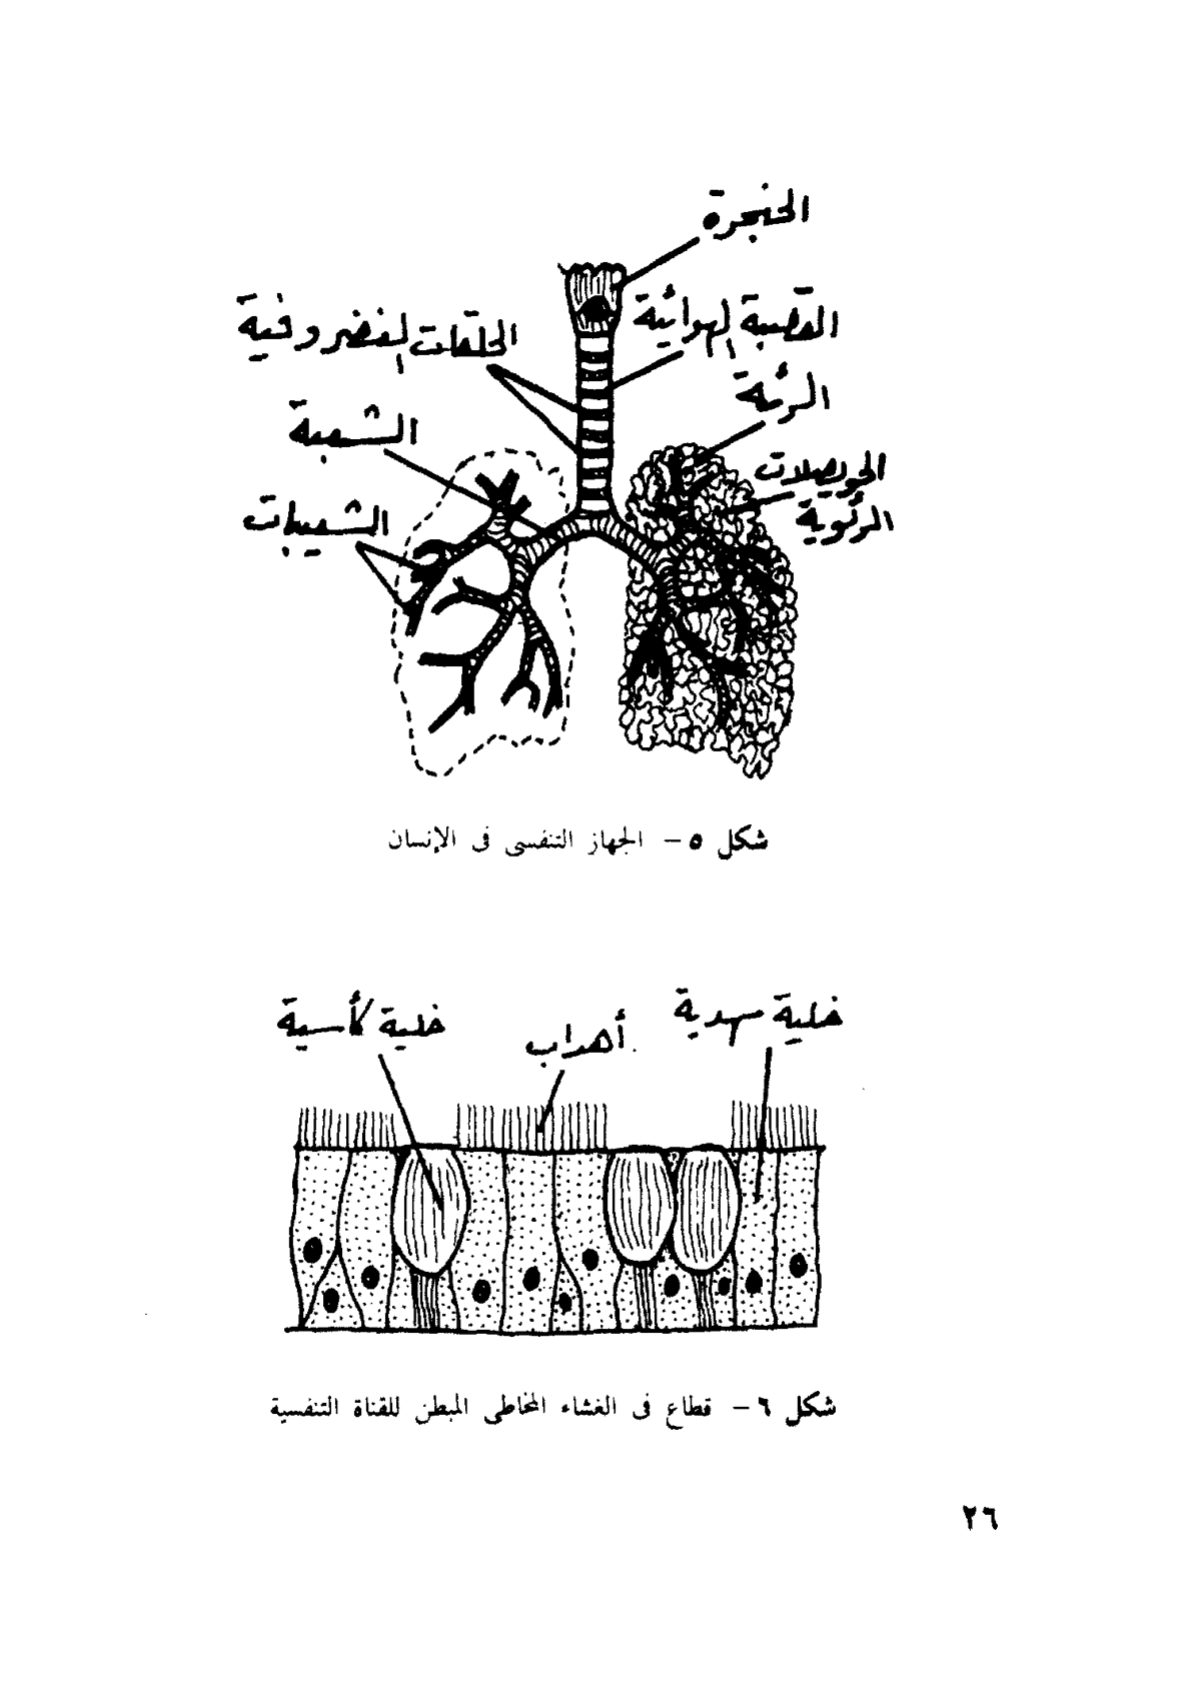 الحنجرة
القصبة الهوائية
الحلقات الغضروفية
الرئة
الشعبة
الحويصلات
الرئوية
الشعيبات
شكل ٥ – الجهاز التنفسى فى الإنسان
خلية هدبية
أهداب
خلية كأسية
شكل ٦ – قطاع فى الغشاء المخاطى المبطن للقناة التنفسية
٢٦